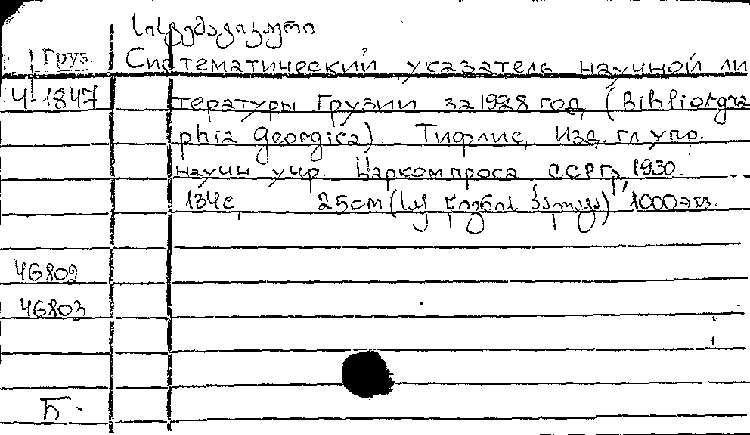 სისტემატიკური
Груз Систематический указатель научной ли
Ч-1847 тературы Грузии за 1928 год, (Bibliogra
phia georgica) Тифлис, Изд. гл. упр.
научн учр. Наркомпроса ССРГ, 1930.
184с, 25см (საქ წიგნის პალატა) 1000экз.
46802
46803
Б.